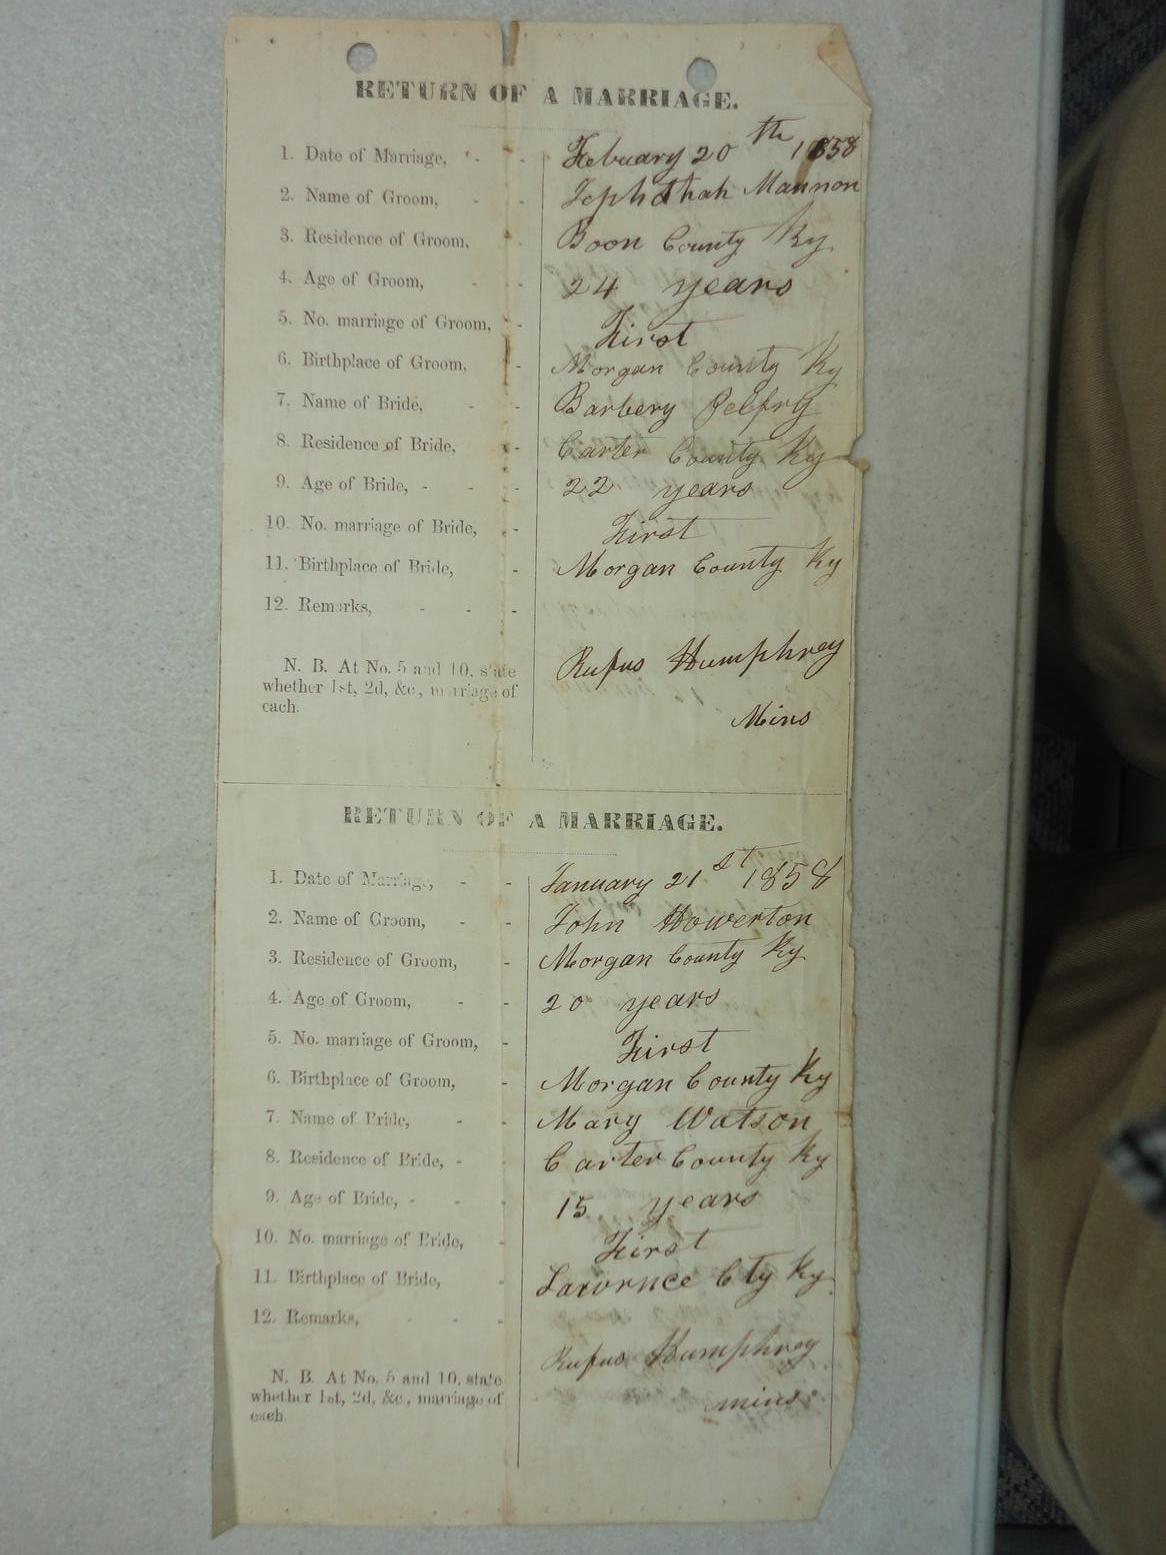 RETURN OF A MARRIAGE.
1. Date of Marriage, - - Febuary 20th 1858
2. Name of Groom, - - Jephthah Mannon
3. Residence of Groom, - Boon County Ky
4. Age of Groom, - - 24 years
5. No. marriage of Groom, - First
6. Birthplace of Groom, - Morgan County Ky
7. Name of Bride, - - Barbery Pelfry
8. Residence of Bride, - Carter County Ky
9. Age of Bride, - - - 22 years
10. No. marriage of Bride, - First
11. Birthplace of Bride, - Morgan County Ky
12. Remarks, - - -
N. B. At No. 5 and 10, state
whether 1st, 2d, &c., marriage of
each.
Rufus Humphrey
Mins
RETURN OF A MARRIAGE.
1. Date of Marriage, - - January 21st 1858
2. Name of Groom, - - John Howerton
3. Residence of Groom, - Morgan County Ky
4. Age of Groom, - - 20 years
5. No. marriage of Groom, - First
6. Birthplace of Groom, - Morgan County Ky
7. Name of Bride, - - Mary Watson
8. Residence of Bride, - - Carter County Ky
9. Age of Bride, - - - 15 years
10. No. marriage of Bride, - First
11. Birthplace of Bride, - Lawrnce Cty Ky
12. Remarks, - - -
N. B. At No. 5 and 10, state
whether 1st, 2d, &c., marriage of
each.
Rufus Humphrey
mins